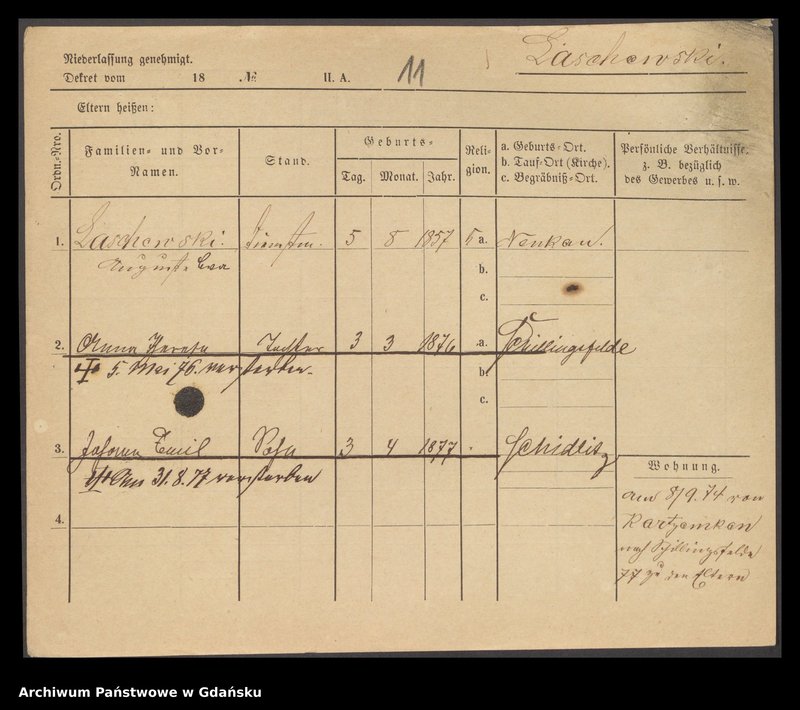 Niederlassung genehmigt.
Dekret vom 18 № II. A. 11
Laschewski.
Eltern heißen:
Ordn.-Nro.
Familien- und Vor-
Namen.
Stand.
Geburts-
Tag. Monat. Jahr.
Reli-
gion.
a. Geburts-Ort.
b. Tauf-Ort (Kirche).
c. Begräbniß-Ort.
Persönliche Verhältnisse.
z. B. bezüglich
des Gewerbes u. s. w.
1. Laschewski. 5 8 1857 a. Nenkau.
Auguste Eva
b.
c.
2. Anna Tochter 3 3 1876 a. Schillingsfelde
5. Mai 76. verstorben.
b.
c.
3. Johann Emil Sohn 3 4 1877 Schidlitz
31.8.77 verstorben
4.
Wohnung.
am 8/9.74 von
nach Schillingsfelde
77 zu den Eltern
Archiwum Państwowe w Gdańsku